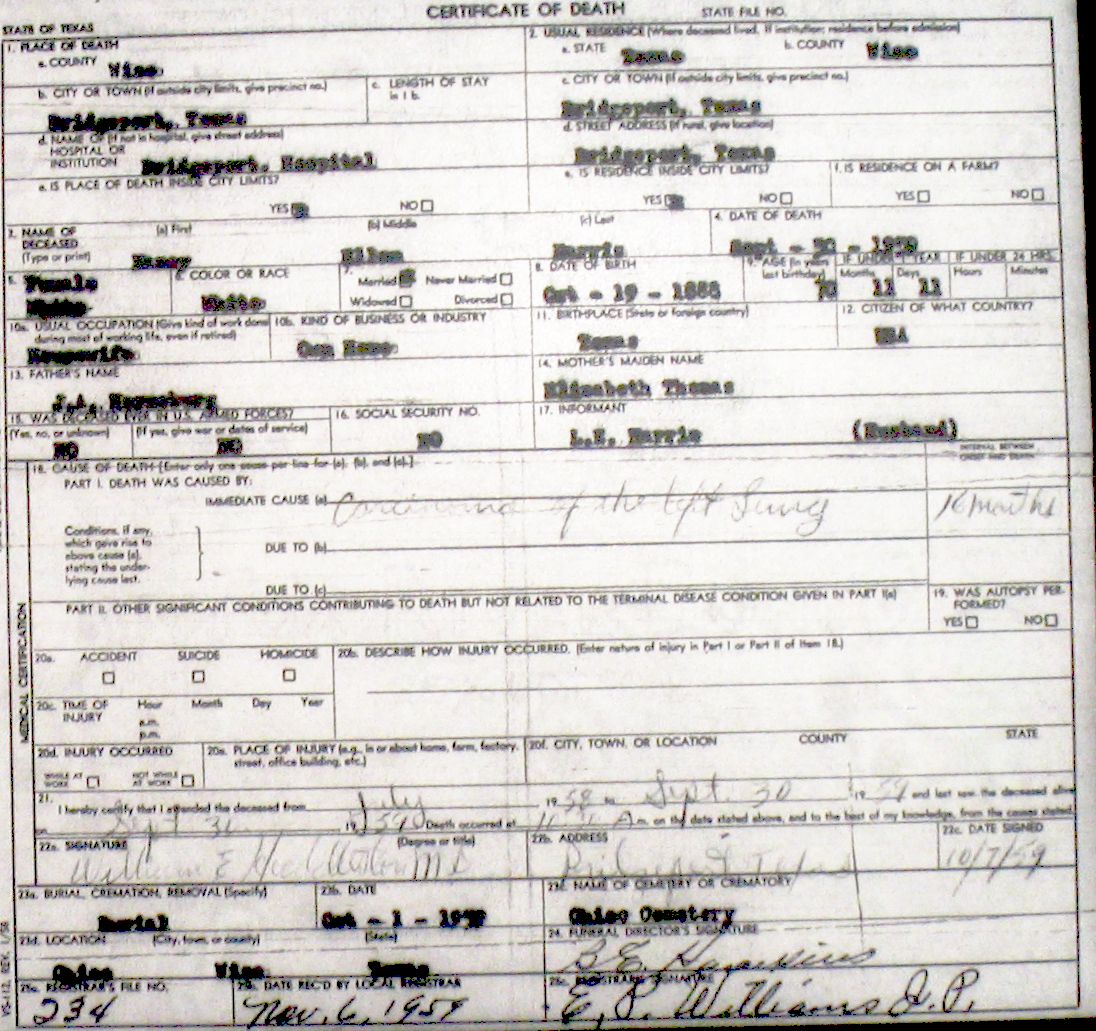 CERTIFICATE OF DEATH
STATE FILE NO.
STATE OF TEXAS
1. PLACE OF DEATH
a. COUNTY
Wise
2. USUAL RESIDENCE (Where deceased lived. If institution: residence before admission)
a. STATE
Texas
b. COUNTY
Wise
b. CITY OR TOWN (If outside city limits, give precinct no.)
Bridgeport, Texas
c. LENGTH OF STAY
in 1 b.
c. CITY OR TOWN (If outside city limits, give precinct no.)
Bridgeport, Texas
d. NAME OF (If not in hospital, give street address)
HOSPITAL OR
INSTITUTION
Bridgeport, Hospital
d. STREET ADDRESS (If rural, give location)
Bridgeport, Texas
e. IS PLACE OF DEATH INSIDE CITY LIMITS?
YES NO
e. IS RESIDENCE INSIDE CITY LIMITS?
YES NO
f. IS RESIDENCE ON A FARM?
YES NO
3. NAME OF
DECEASED
(Type or print)
(a) First
(b) Middle
Ellen
(c) Last
Harris
4. DATE OF DEATH
Sept - 30 - 1959
5.
Female
White
6. COLOR OR RACE
White
7.
Married Never Married
Widowed Divorced
8. DATE OF BIRTH
Oct - 19 - 1888
9. AGE (In years
last birthday)
70
IF UNDER 1 YEAR
Months Days
11 11
IF UNDER 24 HRS.
Hours Minutes
10a. USUAL OCCUPATION (Give kind of work done
during most of working life, even if retired)
Housewife
10b. KIND OF BUSINESS OR INDUSTRY
Own Home
11. BIRTHPLACE (State or foreign country)
Texas
12. CITIZEN OF WHAT COUNTRY?
USA
13. FATHER'S NAME
J.A.
14. MOTHER'S MAIDEN NAME
Elizabeth Thomas
15. WAS DECEASED EVER IN U.S. ARMED FORCES?
(Yes, no, or unknown)
NO
(If yes, give war or dates of service)
NO
16. SOCIAL SECURITY NO.
NO
17. INFORMANT
L.E. Harris (Husband)
MEDICAL CERTIFICATION
18. CAUSE OF DEATH [Enter only one cause per line for (a), (b), and (c).]
INTERVAL BETWEEN
ONSET AND DEATH
PART I. DEATH WAS CAUSED BY:
IMMEDIATE CAUSE (a)
Carcinoma of the left Lung
16 months
Conditions, if any,
which gave rise to
above cause (a),
stating the under-
lying cause last.
DUE TO (b)
DUE TO (c)
PART II. OTHER SIGNIFICANT CONDITIONS CONTRIBUTING TO DEATH BUT NOT RELATED TO THE TERMINAL DISEASE CONDITION GIVEN IN PART I(a)
19. WAS AUTOPSY PER-
FORMED?
YES NO
20a. ACCIDENT SUICIDE HOMICIDE
20b. DESCRIBE HOW INJURY OCCURRED. (Enter nature of injury in Part I or Part II of item 18.)
20c. TIME OF
INJURY
Hour Month Day Year
a.m.
p.m.
20d. INJURY OCCURRED
WHILE AT
WORK
NOT WHILE
AT WORK
20e. PLACE OF INJURY (e.g., in or about home, farm, factory,
street, office building, etc.)
20f. CITY, TOWN, OR LOCATION COUNTY STATE
21.
I hereby certify that I attended the deceased from July, 1958 to Sept. 30 1959 and last saw the deceased alive
on Sept 30 1959 Death occurred at m. on the date stated above, and to the best of my knowledge, from the causes stated.
22a. SIGNATURE (Degree or title)
William E MD
22b. ADDRESS
Bridgeport Texas
22c. DATE SIGNED
10/7/59
23a. BURIAL, CREMATION, REMOVAL (Specify)
Burial
23b. DATE
Oct - 1 - 1959
23c. NAME OF CEMETERY OR CREMATORY
Chico Cemetery
23d. LOCATION (City, town, or county) (State)
Chico Wise Texas
24. FUNERAL DIRECTOR'S SIGNATURE
B.E. Hawkins
25a. REGISTRAR'S FILE NO.
234
25b. DATE REC'D BY LOCAL REGISTRAR
Nov. 6, 1959
25c. REGISTRAR'S SIGNATURE
E. P. Williams J.P.
VS-112, REV. 1/58